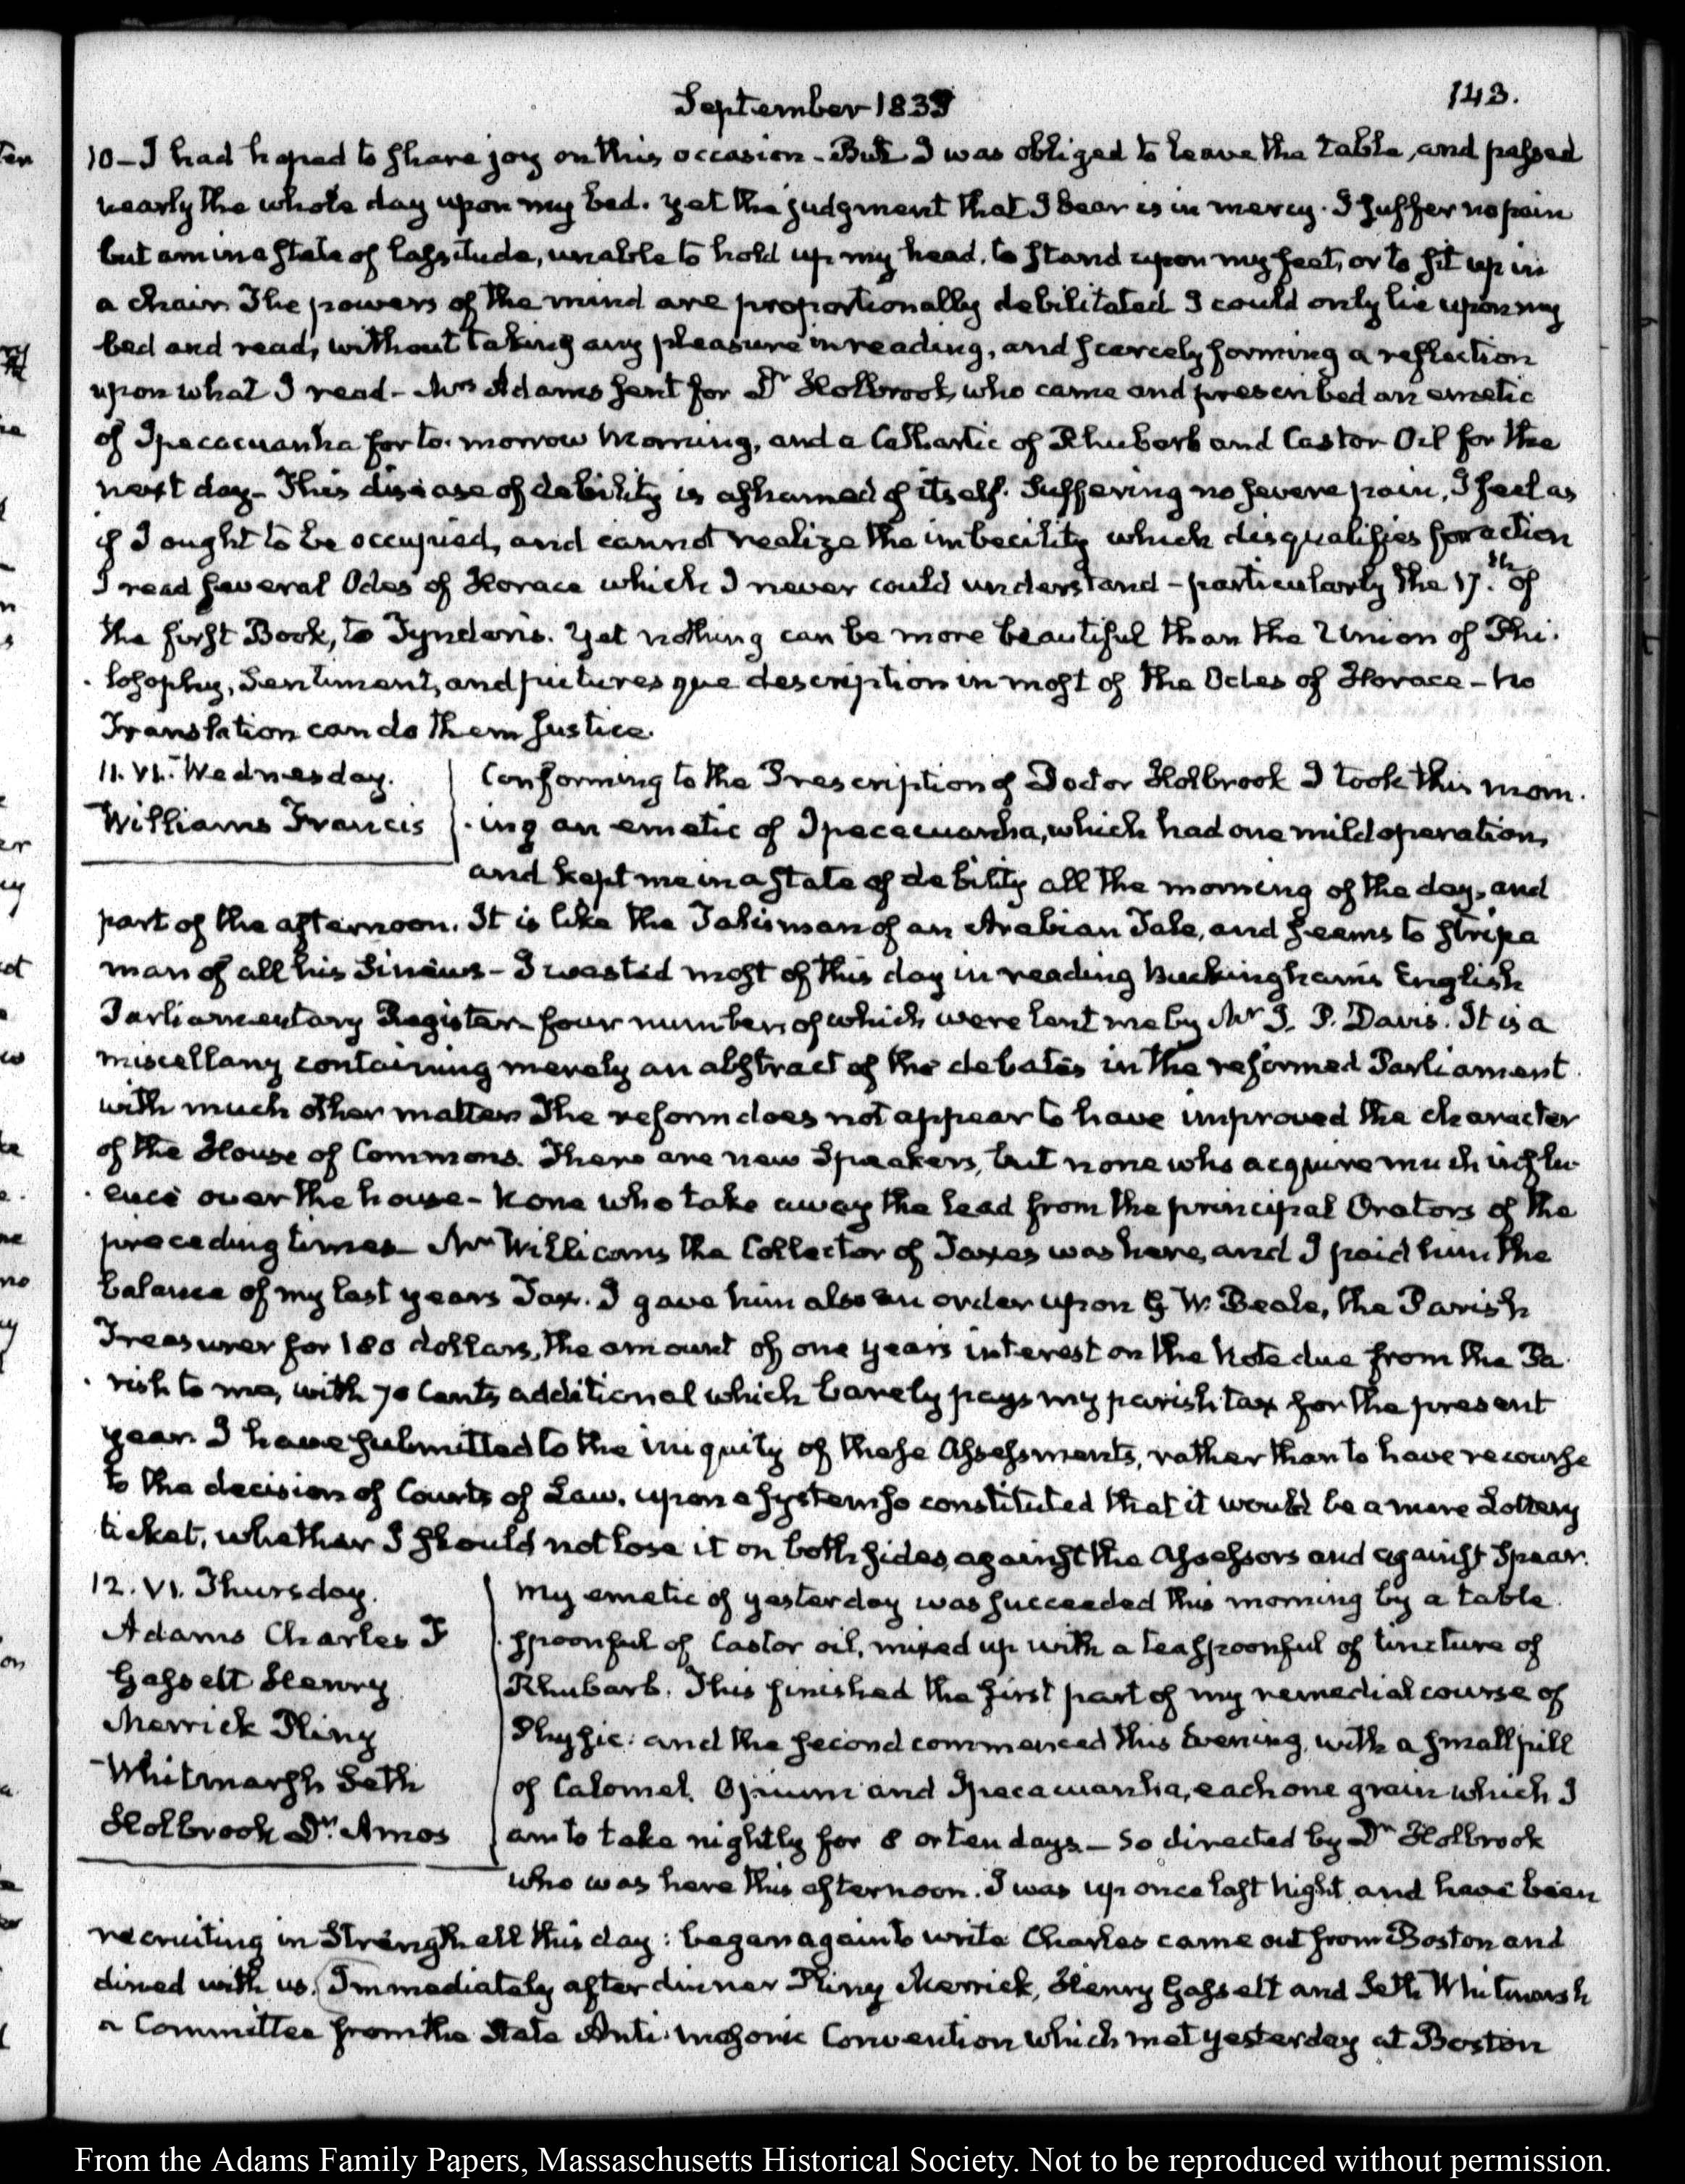 September 1833
143.
10 - I had hoped to share joy on this occasion - But I was obliged to leave the table, and passed
nearly the whole day upon my bed. yet the judgment that I bear is in mercy. I suffer no pain
but am in a state of lassitude, unable to hold up my head, to stand upon my feet, or to sit up in
a chair. The powers of the mind are proportionally debilitated I could only lie upon my
bed and read, without taking any pleasure in reading, and scarcely forming a reflection
upon what I read - Mrs Adams sent for Dr Holbrook, who came and prescribed an emetic
of Ipecacuanha for to-morrow Morning, and a Cathartic of Rhubarb and Castor Oil for the
next day - This disease of debility is ashamed of itself. Suffering no severe pain, I feel as
if I ought to be occupied, and cannot realize the imbecility which disqualifies for action
I read several Odes of Horace which I never could understand - particularly the 17.th of
the first Book, to Tyndaris. Yet nothing can be more beautiful than the Union of Phi-
-losophy, Sentiment, and picturesque description in most of the Odes of Horace - No
Translation can do them justice.
11. VI. Wednesday.
Williams Francis
Conforming to the Prescription of Doctor Holbrook I took this morn-
-ing an emetic of Ipecacuanha, which had one mild operation,
and kept me in a state of debility all the morning of the day, and
part of the afternoon. It is like the Talisman of an Arabian Tale, and seems to strip a
man of all his Sinews - I wasted most of this day in reading Buckingham's English
Parliamentary Register four numbers of which were lent me by Mr I. P. Davis. It is a
miscellany containing merely an abstract of the debates in the reformed Parliament
with much other matter. The reform does not appear to have improved the character
of the House of Commons. There are new Speakers, but none who acquire much influ-
-ence over the house - None who take away the lead from the principal Orators of the
preceding times - Mr Williams the Collector of Taxes was here, and I paid him the
balance of my last years Tax. I gave him also an order upon G W. Beale, the Parish
Treasurer for 180 dollars, the amount of one years interest on the Note due from the Pa-
-rish to me, with 70 Cents additional which barely pays my parish tax for the present
year. I have submitted to the iniquity of these Assessments, rather than to have recourse
to the decision of Courts of Law, upon a system so constituted that it would be a mere Lottery
ticket, whether I should not lose it on both sides, against the Assessors and against Spear.
12. VI. Thursday.
Adams Charles F
Gassett Henry
Merrick Pliny
Whitmarsh Seth
Holbrook Dr. Amos
My emetic of yesterday was succeeded this morning by a table-
-spoonful of Castor oil, mixed up with a teaspoonful of tincture of
Rhubarb. This finished the first part of my remedial course of
Physic: and the second commenced this Evening, with a small pill
of Calomel, Opium and Ipecacuanha, each one grain which I
am to take nightly for 8 or ten days - So directed by Dr Holbrook
who was here this afternoon. I was up once last Night, and have been
recruiting in Strength all this day: began again to write Charles came out from Boston and
dined with us. Immediately after dinner Pliny Merrick, Henry Gassett and Seth Whitmarsh
a Committee from the State Anti-masonic Convention which met yesterday at Boston
From the Adams Family Papers, Massachusetts Historical Society. Not to be reproduced without permission.